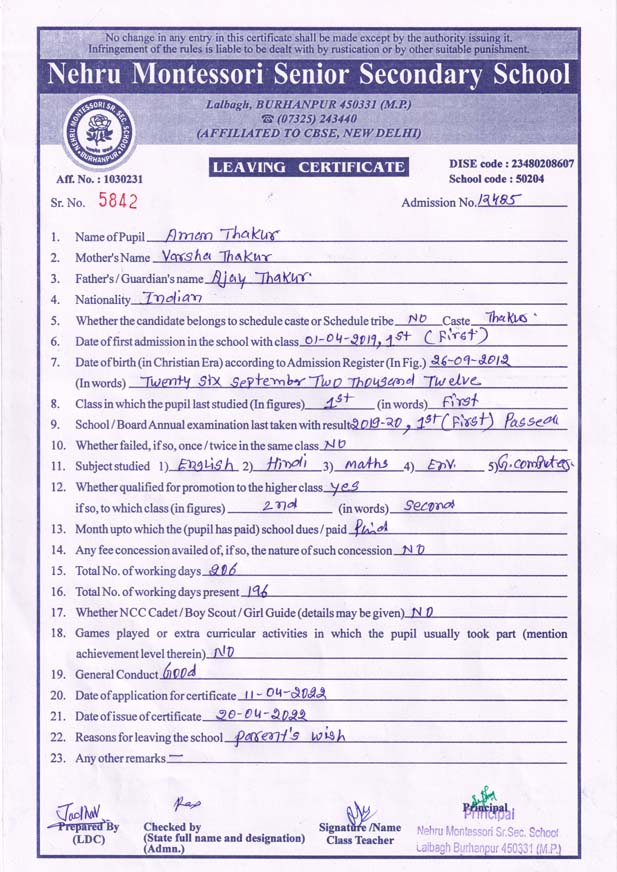 No change in any entry in this certificate shall be made except by the authority issuing it.
Infringement of the rules is liable to be dealt with by rustication or by other suitable punishment.
Nehru Montessori Senior Secondary School
Lalbagh, BURHANPUR 450331 (M.P.)
☎ (07325) 243440
(AFFILIATED TO CBSE, NEW DELHI)
NEHRU MONTESSORI SR. SEC. SCHOOL
BURHANPUR
LEAVING CERTIFICATE
DISE code : 23480208607
Aff. No. : 1030231 School code : 50204
Sr. No. 5842 Admission No. 13485
1. Name of Pupil Aman Thakur
2. Mother's Name Varsha Thakur
3. Father's / Guardian's name Ajay Thakur
4. Nationality Indian
5. Whether the candidate belongs to schedule caste or Schedule tribe NO Caste Thakur
6. Date of first admission in the school with class 01-04-2019, 1st (First)
7. Date of birth (in Christian Era) according to Admission Register (In Fig.) 26-09-2012
(In words) Twenty Six September Two Thousand Twelve
8. Class in which the pupil last studied (In figures) 1st (in words) First
9. School / Board Annual examination last taken with result 2019-20, 1st (First) Passed
10. Whether failed, if so, once / twice in the same class NO
11. Subject studied 1) English 2) Hindi 3) maths 4) Env. 5) G.computer
12. Whether qualified for promotion to the higher class yes
if so, to which class (in figures) 2nd (in words) Second
13. Month upto which the (pupil has paid) school dues / paid Paid
14. Any fee concession availed of, if so, the nature of such concession NO
15. Total No. of working days 206
16. Total No. of working days present 196
17. Whether NCC Cadet / Boy Scout / Girl Guide (details may be given) NO
18. Games played or extra curricular activities in which the pupil usually took part (mention
achievement level therein) NO
19. General Conduct Good
20. Date of application for certificate 11-04-2022
21. Date of issue of certificate 20-04-2022
22. Reasons for leaving the school parent's wish
23. Any other remarks —
Prepared By
(LDC)
Checked by
(State full name and designation)
(Admn.)
Signature /Name
Class Teacher
Principal
Principal
Nehru Montessori Sr.Sec. School
Lalbagh Burhanpur 450331 (M.P.)